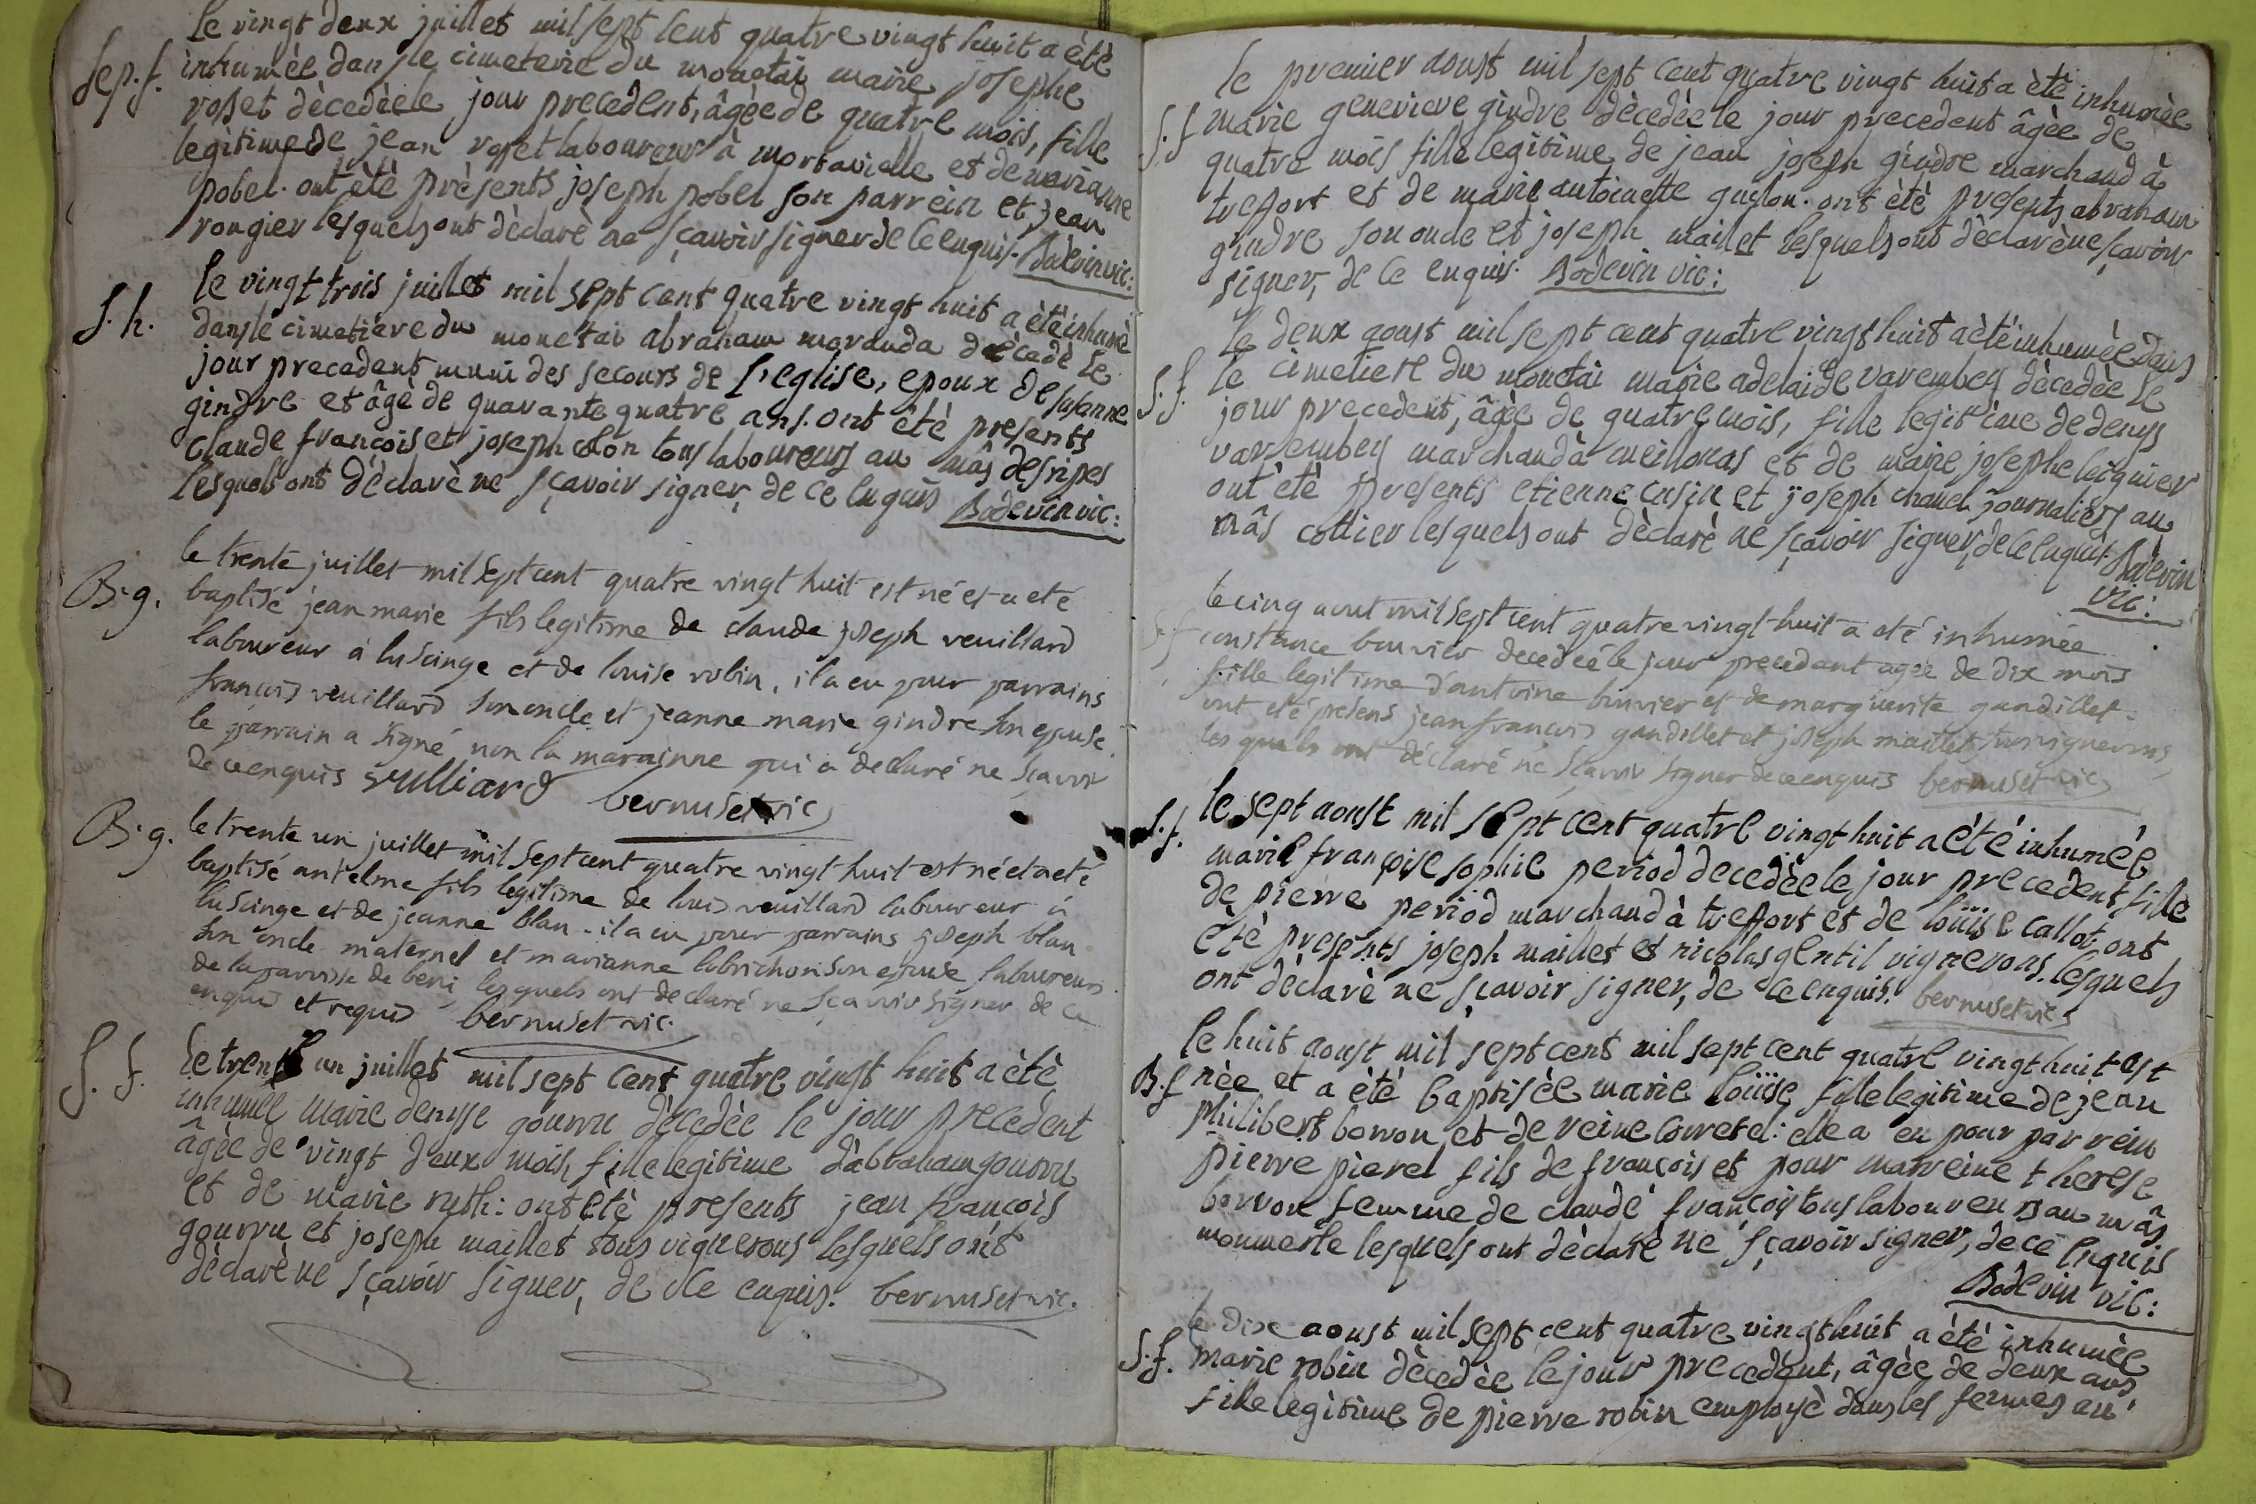 le vingt deux juillet mil sept cent quatre vingt huit a ètè
Sep. f. inhumèe dans le cimeterie du monetai marie josephe
rosset dècedèe le jour precedent, âgèe de quatre mois, fille
legitime de jean rosset laboureur à montavialle et de marianne
pobel. ont ètè prèsents joseph pobel son parrein et jean
rougier lesquels ont dèclarè ne sçavoir signer de ce enquis. Bodevin vic:
S. h. le vingt trois juillet mil sept cent quatre vingt huit a ètè inhumè
dans le cimetiere du monetai abraham maranda dècedè le
jour precedent muni des secours de l'eglise, epoux de susanne
gindre et âgè de quarante quatre ans. ont ètè presents
claude françois et joseph colon tous laboureurs au mâs des ripes
lesquels ont dèclarè ne sçavoir signer de ce enquis Bodevin vic:
B. g. le trente juillet mil sept cent quatre vingt huit est né et a eté
baptisé jean marie fils legitime de claude joseph veuillard
laboureur a lu Scinge et de louise robin, il a eu pour parrains
françois veuillard son oncle et jeanne marie gindre son epouse
le parrain a signé non la marainne qui a declaré ne sçavoir
de ce enquis Vulliard bernuset vic
B. g. le trente un juillet mil sept cent quatre vingt huit est né et a eté
baptisé antelme fils legitime de louis veuillard laboureur a
lu Scinge et de jeanne blan. il a eu pour parrains joseph blan
son oncle maternel et marianne labrichon son epouse laboureurs
de la parroisse de beni lesquels ont declaré ne sçavoir signer de ce
enquis et requis bernuset vic.
S. f. Le trente un juillet mil sept cent quatre vingt huit a ètè
inhumèe marie denyse gourru dècedèe le jour precedent
âgèe de vingt deux mois, fille legitime d'abraham gourru
et de marie ruth: ont etè presents jean françois
gourru et joseph maillet tous vignerons lesquels ont
dèclarè ne sçavoir signer, de ce enquis. bernuset vic.
le premier aoust mil sept cent quatre vingt huit a ètè inhumèe
S. f marie genevieve gindre dècedèe le jour precedent âgèe de
quatre mois fille legitime de jean joseph gindre marchand à
treffort et de marie antoinette guillon. ont ètè presents abraham
gindre son oncle et joseph maillet lesquels ont dèclarè ne sçavoir
signer, de ce enquis. Bodevin vic:
le deux aoust mil sept cent quatre vingt huit a ètè inhumèe dans
S. f. le cimetiere du monetai marie adelaide varembey dècedèe le
jour precedent, âgèe de quatre mois, fille legitime de denys
varembey marchand à meillonas et de marie josephe leiguier
ont ètè presents etienne cusin et joseph chanel journaliers au
mâs cottier lesquels ont dèclarè ne sçavoir signer, de ce enquis Bodevin
vic:
le cinq aout mil sept cent quatre vingt huit a eté inhumée
S f constance bouvier decedeé le jour precedant ageé de dix mois
fille legitime d'antoine bouvier et de marguerite gandillet.
ont eté presens jean françois gandillet et joseph maillet tous vignerons
les quels ont déclaré ne sçavoir signer de ce enquis bernuset vic
S. f. le sept aoust mil sept cent quatre vingt huit a été inhumée
marie françoise sophie period decedèe le jour precedent, fille
de pierre period marchand à treffort et de loüise callot, ont
ètè presents joseph maillet et nicolas gentil vignerons. lesquels
ont dèclarè ne sçavoir signer, de ce enquis. bernuset vic
le huit aoust mil sept cent mil sept cent quatre vingt huit est
B. f nèe et a ètè baptisèe marie loüise fille legitime de jean
philibert borron et de reine convetel: elle a eu pour parrein
pierre pierel fils de françois et pour marreine therese
borron femme de claude françois tous laboureurs au mâs
moumerle lesquels ont dèclarè ne sçavoir signer, de ce enquis
Bodevin vic:
le dix aoust mil sept cent quatre vingt huit a ètè inhumèe
S. f. marie robin dècedèe le jour precedent, âgèe de deux ans
fille legitime de pierre robin employè dans les fermes au